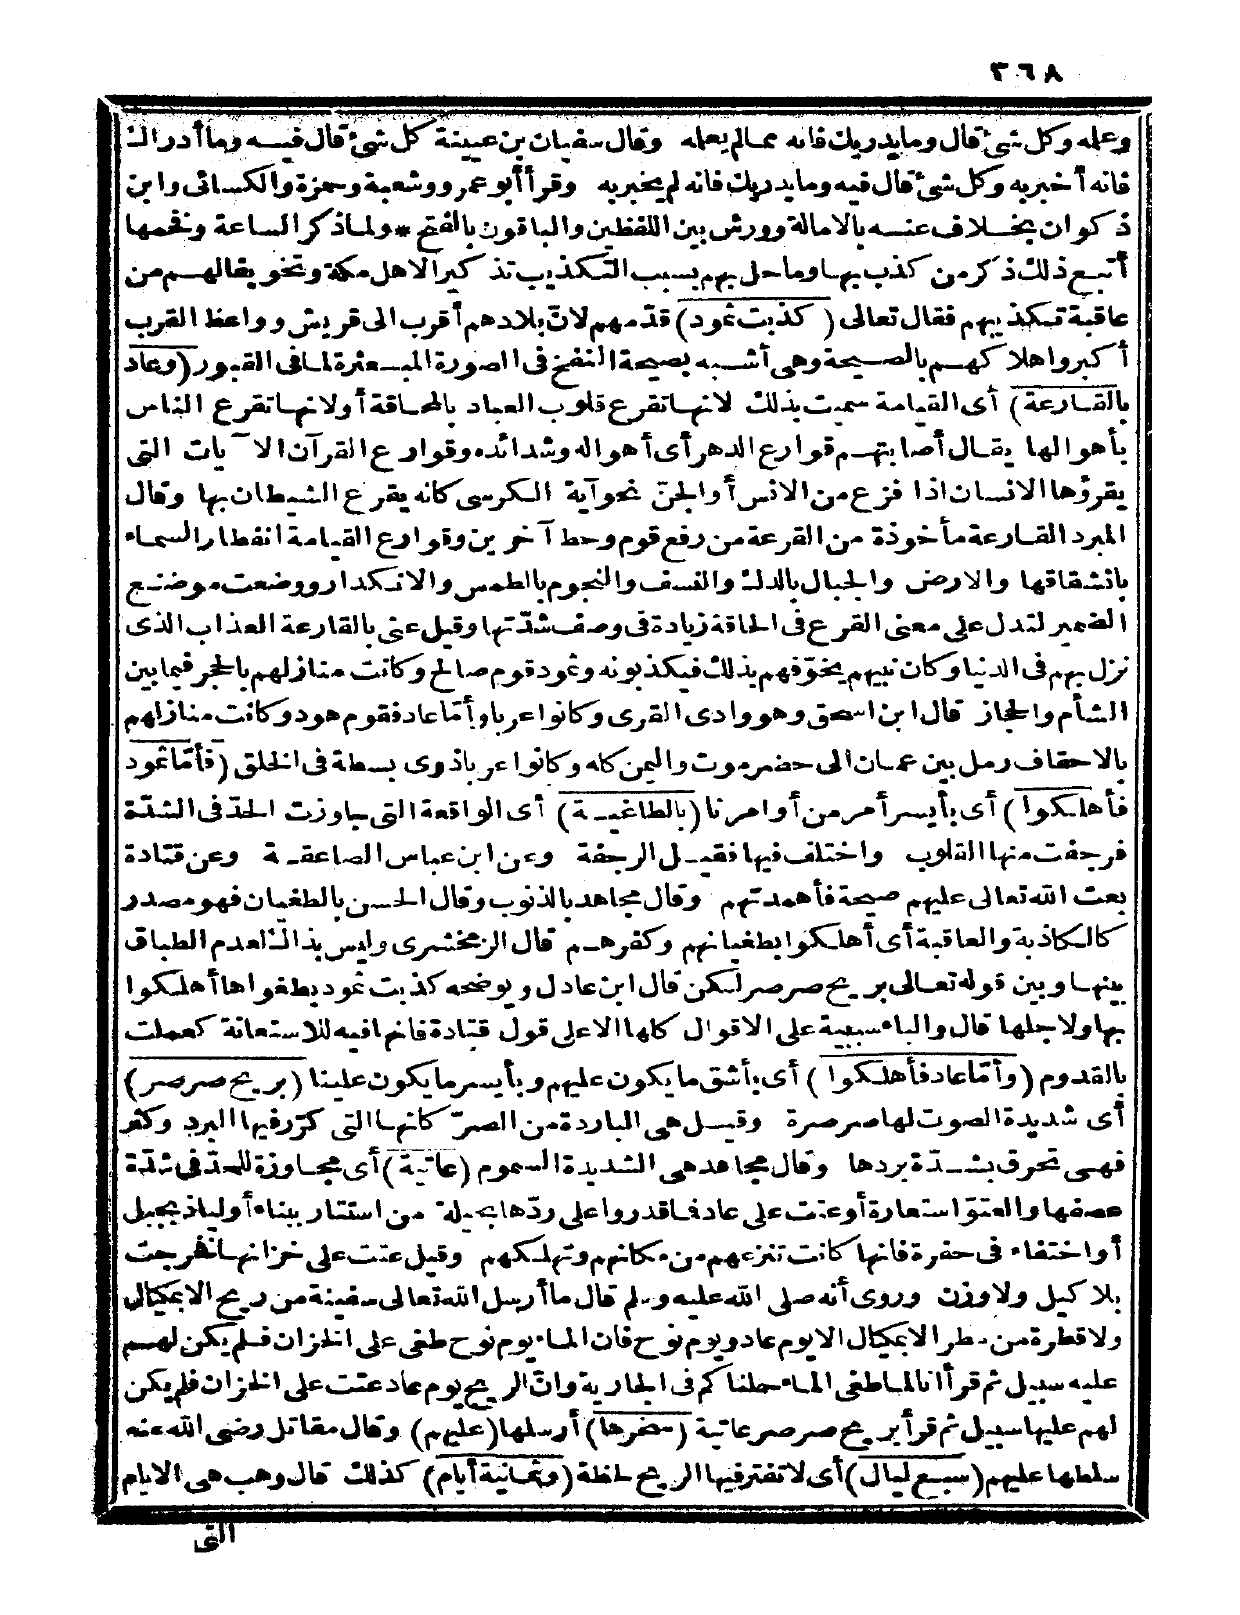 ٣٦٨
وعلمه وكل شئ قال وما يدريك فانه ممالم يعلمه وقال سفيان بن عيينة كل شئ قال فيه وما أدراك
فانه أخبر به وكل شئ قال فيه وما يدريك فانه لم يخبر به وقرأ أبو عمرو وشعبة وحمزة والكسائى وابن
ذكوان بخلاف عنه بالامالة وورش بين اللفظين والباقون بالفتح * ولما ذكر الساعة وفخمها
أتبع ذلك ذكر من كذب بها وما حل بهم بسبب التكذيب تذكيرا لاهل مكة وتخويفا لهم من
عاقبة تكذيبهم فقال تعالى (كذبت ثمود) قدّمهم لانّ بلادهم أقرب الى قريش وواعظ القرب
أكبر واهلاكهم بالصيحة وهى أشبه بصيحة النفخ فى الصور المبعثرة لما فى القبور (وعاد
بالقارعة) أى القيامة سميت بذلك لانها تقرع قلوب العباد بالمخافة أو لانها تقرع الناس
بأهوالها يقال أصابتهم قوارع الدهر أى أهواله وشدائده وقوارع القرآن الآيات التى
يقرؤها الانسان اذا فزع من الانس أو الجنّ نحو آية الكرسى كانه يقرع الشيطان بها وقال
المبرد القارعة مأخوذة من القرعة من رفع قوم وحط آخرين وقوارع القيامة انفطار السماء
بانشقاقها والارض والجبال بالدك والنسف والنجوم بالطمس والانكدار ووضعت موضع
الضمير لتدل على معنى القرع فى الحاقة زيادة فى وصف شدّتها وقيل عنى بالقارعة العذاب الذى
نزل بهم فى الدنيا وكان نبيهم يخوّفهم بذلك فيكذبونه وثمود قوم صالح وكانت منازلهم بالحجر فيما بين
الشأم والحجاز قال ابن اسحق وهو وادى القرى وكانوا عربا وأمّا عاد فقوم هود وكانت منازلهم
بالاحقاف رمل بين عمان الى حضرموت واليمن كله وكانوا عربا ذوى بسطة فى الخلق (فأمّا ثمود
فأهلكوا) أى بأيسر أمر من أوامرنا (بالطاغية) أى الواقعة التى جاوزت الحدّ فى الشدّة
فرجفت منها القلوب واختلف فيها فقيل الرجفة وعن ابن عباس الصاعقة وعن قتادة
بعث الله تعالى عليهم صيحة فأهمدتهم وقال مجاهد بالذنوب وقال الحسن بالطغيان فهو مصدر
كالكاذبة والعاقبة أى أهلكوا بطغيانهم وكفرهم قال الزمخشرى وليس بذاك لعدم الطباق
بينها وبين قوله تعالى بريح صرصر لكن قال ابن عادل ويوضحه كذبت ثمود بطغواها أهلكوا
بها ولاجلها قال والباء سببية على الاقوال كلها الا على قول قتادة فانها فيه للاستعانة كعملت
بالقدوم (وأمّا عاد فأهلكوا) أى بأشق ما يكون عليهم وبأيسر ما يكون علينا (بريح صرصر)
أى شديدة الصوت لها صرصرة وقيل هى الباردة من الصرّ كانها التى كرّر فيها البرد وكثر
فهى تحرق بشدّة بردها وقال مجاهد هى الشديدة السموم (عاتية) أى مجاوزة للحدّ فى شدّة
عصفها والعتوّ استعارة أو عتت على عاد فما قدروا على ردّها بحيلة من استتار ببناء أو لياذ بجبل
أو اختفاء فى حفرة فانها كانت تنزعهم من مكانهم وتهلكهم وقيل عتت على خزانها فخرجت
بلا كيل ولا وزن وروى أنه صلى الله عليه وسلم قال ما أرسل الله تعالى سفينة من ريح الا بمكيال
ولا قطرة من مطر الا بمكيال الا يوم عاد ويوم نوح فان الماء يوم نوح طغى على الخزان فلم يكن لهم
عليه سبيل ثم قرأ انا لما طغى الماء حملناكم فى الجارية وانّ الريح يوم عاد عتت على الخزان فلم يكن
لهم عليها سبيل ثم قرأ بريح صرصر عاتية (سخرها) أرسلها (عليهم) وقال مقاتل رضى الله عنه
سلطها عليهم (سبع ليال) أى لا تفتر فيها الريح لحظة (وثمانية أيام) كذلك قال وهب هى الايام
التى